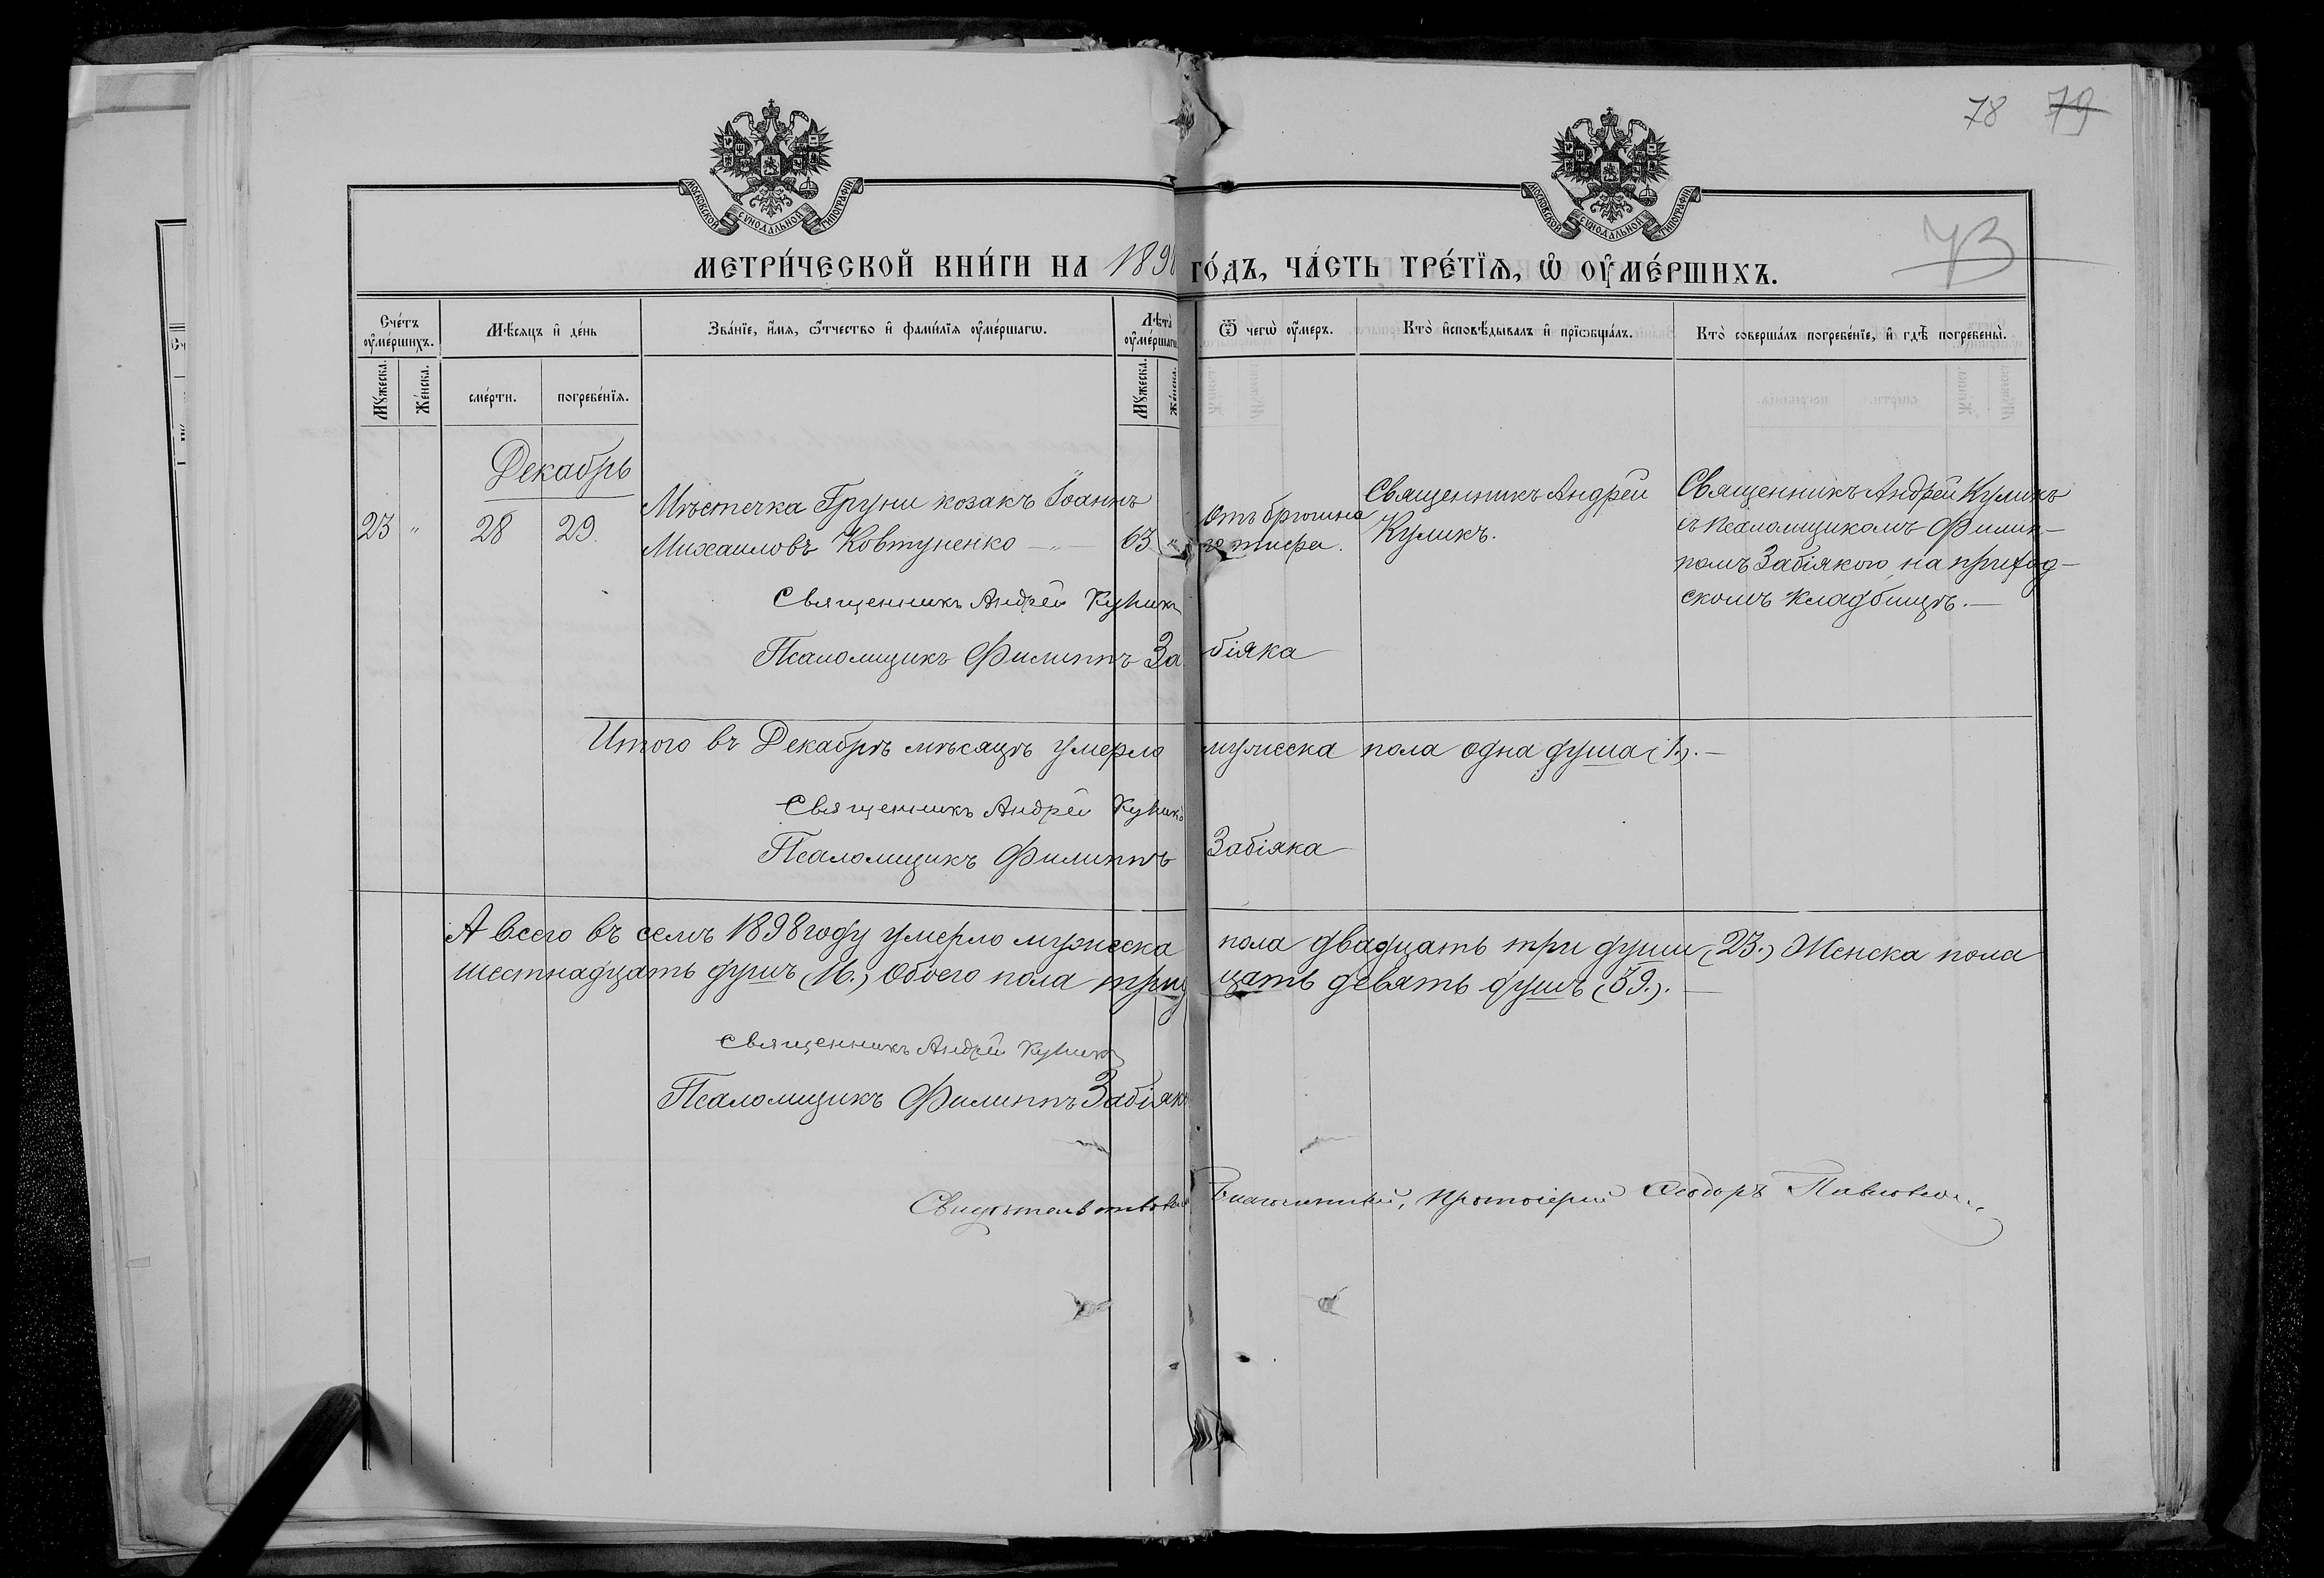 78 79
МОСКОВСКОЙ СѴНОДАЛЬНОЙ ТИПОГРАФІИ
МОСКОВСКОЙ СѴНОДАЛЬНОЙ ТИПОГРАФІИ
МЕТРИ́ЧЕСКОЙ КНИ́ГИ НА 189 ГО́ДЪ, ЧА́СТЬ ТРЕ́ТЇѦ, Ѡ҆ ОУ҆МЕ́РШИХЪ.
Сче́тъ оу҆ме́ршихъ.
Мѣ́сяцъ и҆ де́нь
Зва́нїе, и҆́мя, ѻ҆́тчество и҆ фами́лїя оу҆ме́ршагѡ.
Лѣ́та оу҆ме́ршагѡ
Ѿ чегѡ̀ оу҆́меръ.
Кто̀ и҆сповѣ́дывалъ и҆ прїѡбща́лъ.
Кто̀ соверша́лъ погребе́нїе, и҆ гдѣ̀ погребены̀.
Мꙋ́жеска. Же́нска.
сме́рти. погребе́нїя.
Мꙋ́жеска. Же́нска.
Декабрь
23 " 28 29.
Мѣстечка Груни козакъ Іоаннъ
Михаиловъ Ковтуненко — " — 63 "
Отъ брюшна
го тифа.
Священникъ Андрей
Куликъ.
Священникъ Андрей Куликъ
съ псаломщикомъ Филип-
помъ Забіякою, на приход-
скомъ кладбищѣ. —
Священникъ Андрей Куликъ
Псаломщикъ Филиппъ Забіяка
Итого въ Декабрѣ мѣсяцѣ умерло мужеска пола одна душа (1). —
Священникъ Андрей Куликъ
Псаломщикъ Филиппъ Забіяка
А всего въ семъ 1898 году умерло мужеска пола двадцать три души (23.) Женска пола
шестнадцать душъ (16.) Обоего пола тридцать девять душъ (39.). —
Священникъ Андрей Куликъ
Псаломщикъ Филиппъ Забіяка
Свидѣтельствовалъ Благочинный, Протоіерей Ѳеодоръ